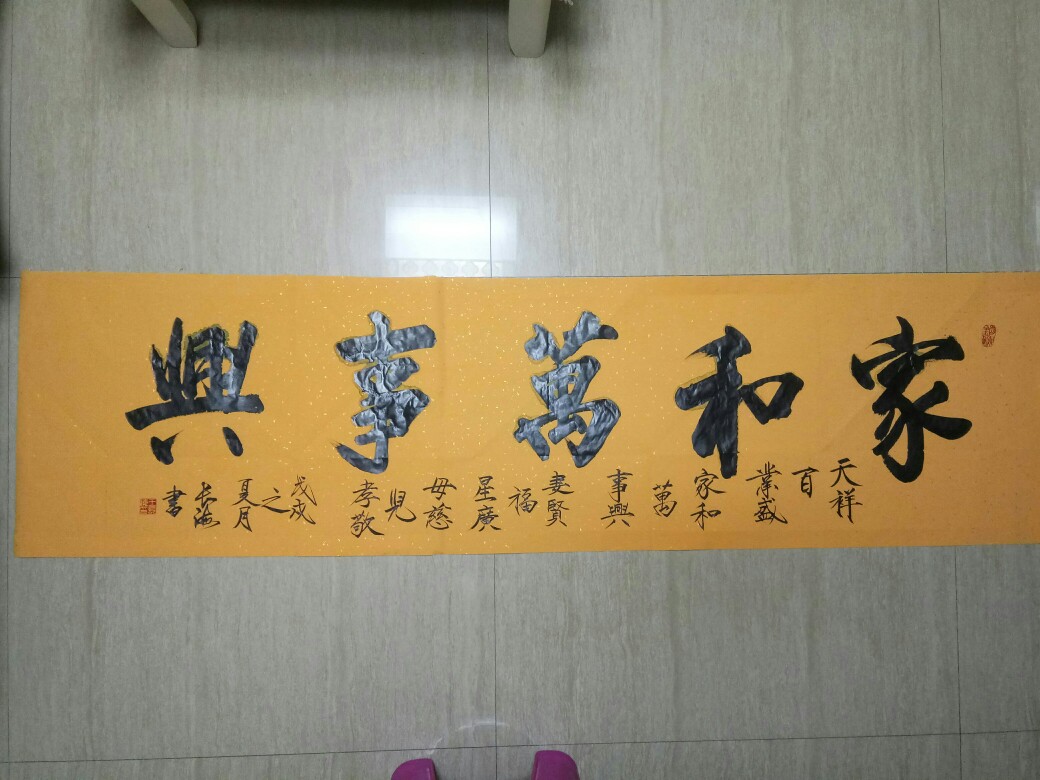 家和萬事興
天祥
百
業盛
家和
萬
事興
妻賢
福
星廣
母慈
兒
孝敬
戊戌
之
夏月
长海
書